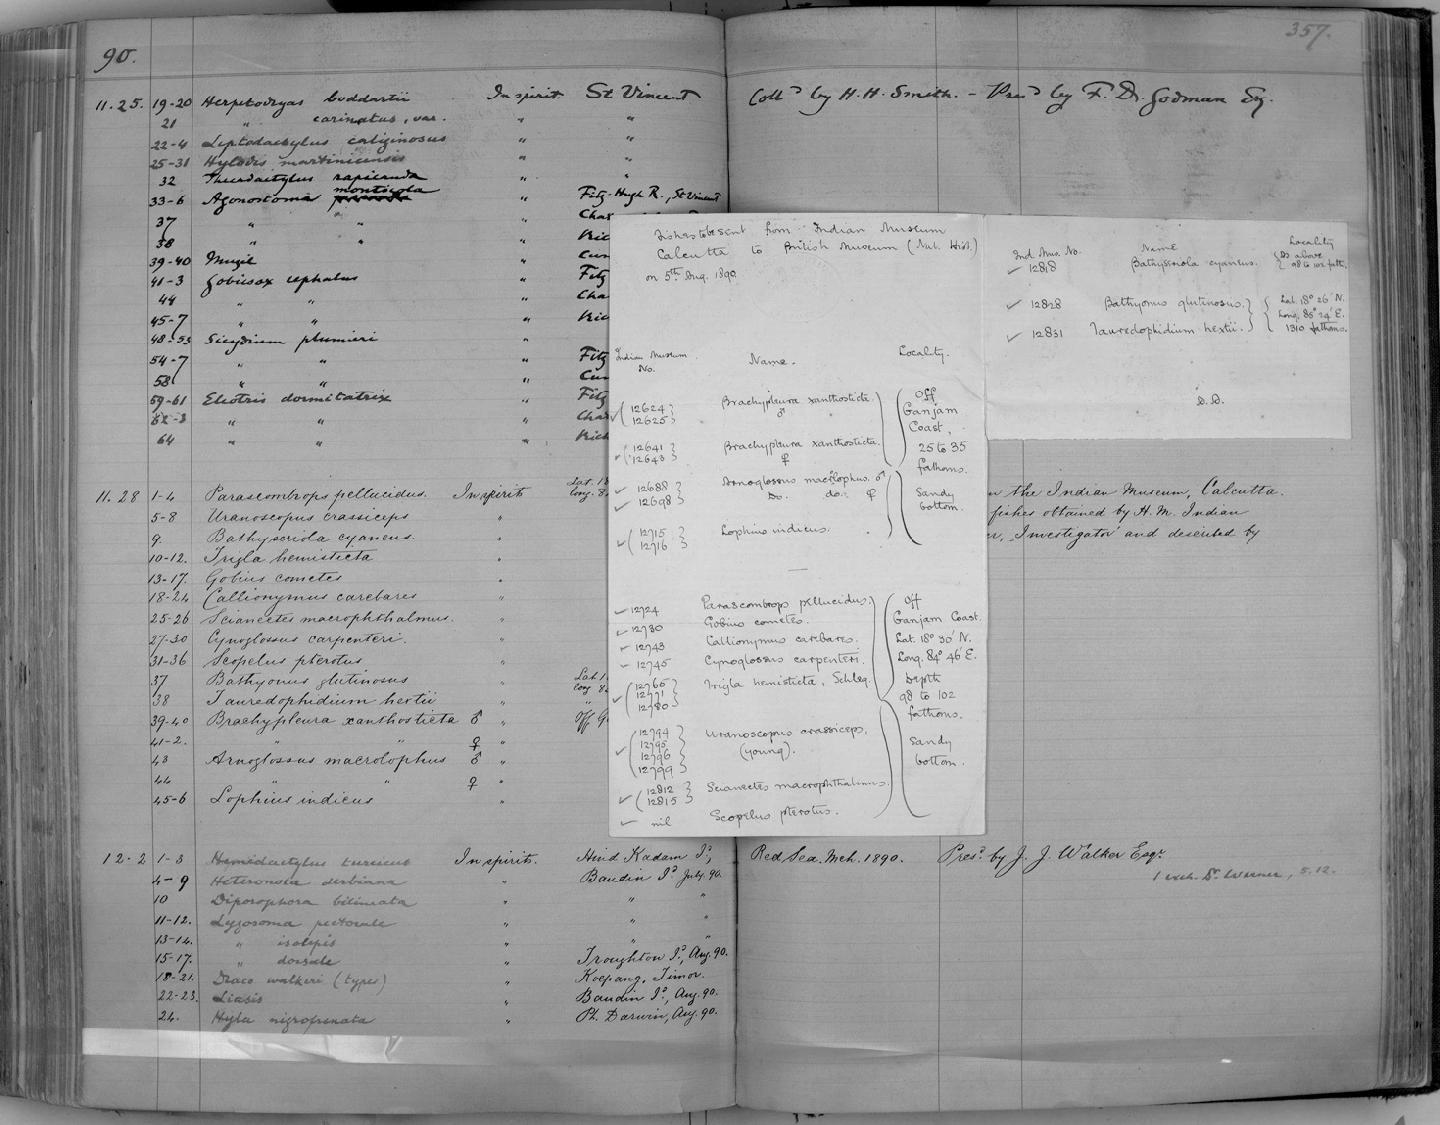 90.
357.
11.25. 19-20 Herpetodryas boddaertii In spirit St Vincent Coll.d by H. H. Smith. - Pres.d by F. D. Godman Esq.
21 " carinatus, var. " "
22-4 Leptodactylus caliginosus " "
25-31 Hylodes martinicensis " "
32 Thecadactylus rapicauda " "
monticola
33-6 Agonostoma " Fitz-Hugh R., St Vincent
37 " " " Cha
38 " " " Ric
39-40 Mugil " Cum
41-3 Gobiesox cephalus " Fitz
44 " " " Cha
45-7 " " " Ric
48-53 Sicydium plumieri "
54-7 " " " Fitz
58 " " " Cum
59-61 Eleotris dormitatrix " Fitz
62-3 " " " Cha
64 " " " Rich
11.28 1-4 Parascombrops pellucidus. In spirits Lat. 18
Long. 8
n the Indian Museum, Calcutta.
5-8 Uranoscopus crassiceps " fishes obtained by H. M. Indian
9. Bathyseriola cyaneus. " er, Investigator and descried by
10-12. Trigla hemisticta "
13-17. Gobius cometes "
18-24 Callionymus carebares "
25-26 Scianectes macrophthalmus. "
27-30 Cynoglossus carpenteri. "
31-36 Scopelus pterotus "
37 Bathyonus glutinosus " Lat 1
Long 8
38 Tauredophidium hextii " "
39-40 Brachypleura xanthosticta ♂ " Off G
41-2. " " ♀ "
43 Arnoglossus macrolophus ♂ "
44 " " ♀ "
45-6 Lophius indicus "
12.2 1-3 Hemidactylus turcicus In spirits. Hind Kadam Id, Red Sea. Mch. 1890. Pres.d by J. J. Walker Esqr
4-9 Heteronota derbiana " Baudin Id July. 90.
1 exch. Dr. Werner, 5.12.
10 Diporophora bilineata " " "
11-12. Lygosoma pectorale " " "
13-14. " isolepis " " "
15-17. " dorsale " Troughton Id, Aug. 90.
18-21. Draco walkeri (types) " Koepang, Timor.
22-23. Liasis " Baudin Id, Aug. 90.
24. Hyla nigrofrenata " Pt. Darwin, Aug. 90.
Fishes to be sent from Indian Museum
Calcutta to British Museum (Nat. Hist.)
on 5th Aug. 1890.
Indian Museum No. Name. Locality.
12624 Brachypleura xanthosticta. Off
12625 ♂ Ganjam
Coast,
12641 Brachypleura xanthosticta. 25 to 35
12643 ♀ fathoms.
12688 Arnoglossus macrolophus. ♂ Sandy
12698 Do. do. ♀ bottom.
12715 Lophius indicus.
12716
12724 Parascombrops pellucidus. Off
12730 Gobius cometes. Ganjam Coast.
12743 Callionymus carebares. Lat. 18° 30' N.
12745 Cynoglossus carpenteri. Long. 84° 46' E.
12765 Trigla hemisticta, Schleg. Depth
12771 98 to 102
12780 fathoms.
12794 Uranoscopus crassiceps, Sandy
12795 (young). bottom.
12796
12799
12812 Scianectes macrophthalmus.
12815
nil Scopelus pterotus.
Ind. Mus. No. Name Locality
12818 Bathyseriola cyaneus. As above
98 to 102 fath.
12828 Bathyonus glutinosus. Lat. 18° 26' N.
Long. 85° 24' E.
12831 Tauredophidium hextii. 1310 fathoms.